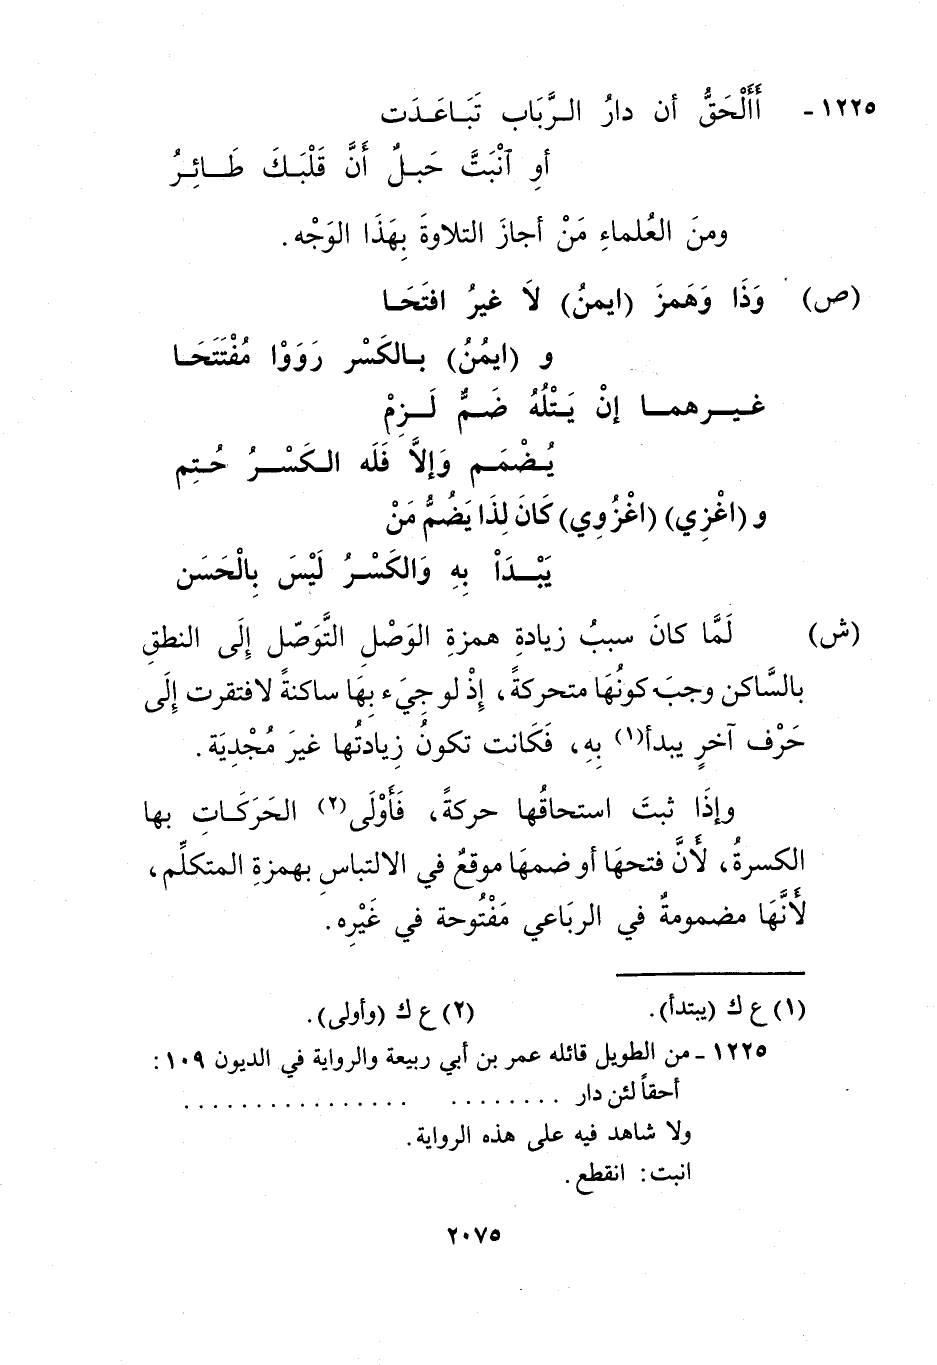 ١٢٢٥ - أَأَلْحَقُّ أن دارُ الـرَّبَاب تَبَـاعَـدَت
أوِ ٱنْبَتَّ حَبـلٌ أَنَّ قَلْبَـكَ طَـائِـرُ
ومنَ العُلماءِ مَنْ أجازَ التلاوةَ بِهَذَا الوَجْه.
(ص) وَذَا وَهَمزَ (ايمنُ) لاَ غيرُ افتَحَـا
و (ايمُنُ) بـالكَسْر رَوَوْا مُفْتَتَحَـا
غـيـرهمـا إنْ يَـتْلُهُ ضَـمٌّ لَـزِمْ
يُـضْمَـم وَإلاَّ فَلَه الـكَسْـرُ حُـتِم
و (اغْزِي) (اغْزُوِي) كَانَ لِذَا يَضُمُّ مَنْ
يَبْـدَأْ بِهِ وَالكَسْـرُ لَيْسَ بِالْحَسَن
(ش) لَمَّا كانَ سببُ زيادةِ همزةِ الوَصْلِ التَّوَصّل إلَى النطقِ
بالسَّاكن وجبَ كونُهَا متحركةً، إذْ لو جِيَء بِهَا ساكنةً لافتقرت إلَى
حَرْف آخرٍ يبدأ(١) بِهِ، فَكَانت تكونُ زِيادتُها غيرَ مُجْدِيَة.
وإذَا ثبتَ استحاقُها حركةً، فَأَوْلَى(٢) الحَرَكَـاتِ بها
الكسرةُ، لأَنَّ فتحهَا أو ضمهَا موقعٌ في الالتباسِ بهمزةِ المتكلِّم،
لأَنَّهَا مضمومةٌ في الربَاعي مَفْتُوحة في غَيْرِه.
(١) ع ك (يبتدأ). (٢) ع ك (وأولى).
١٢٢٥ - من الطويل قائله عمر بن أبي ربيعة والرواية في الديون ١٠٩:
أحقاً لئن دار ........ ................
ولا شاهد فيه على هذه الرواية.
انبت: انقطع.
٢٠٧٥